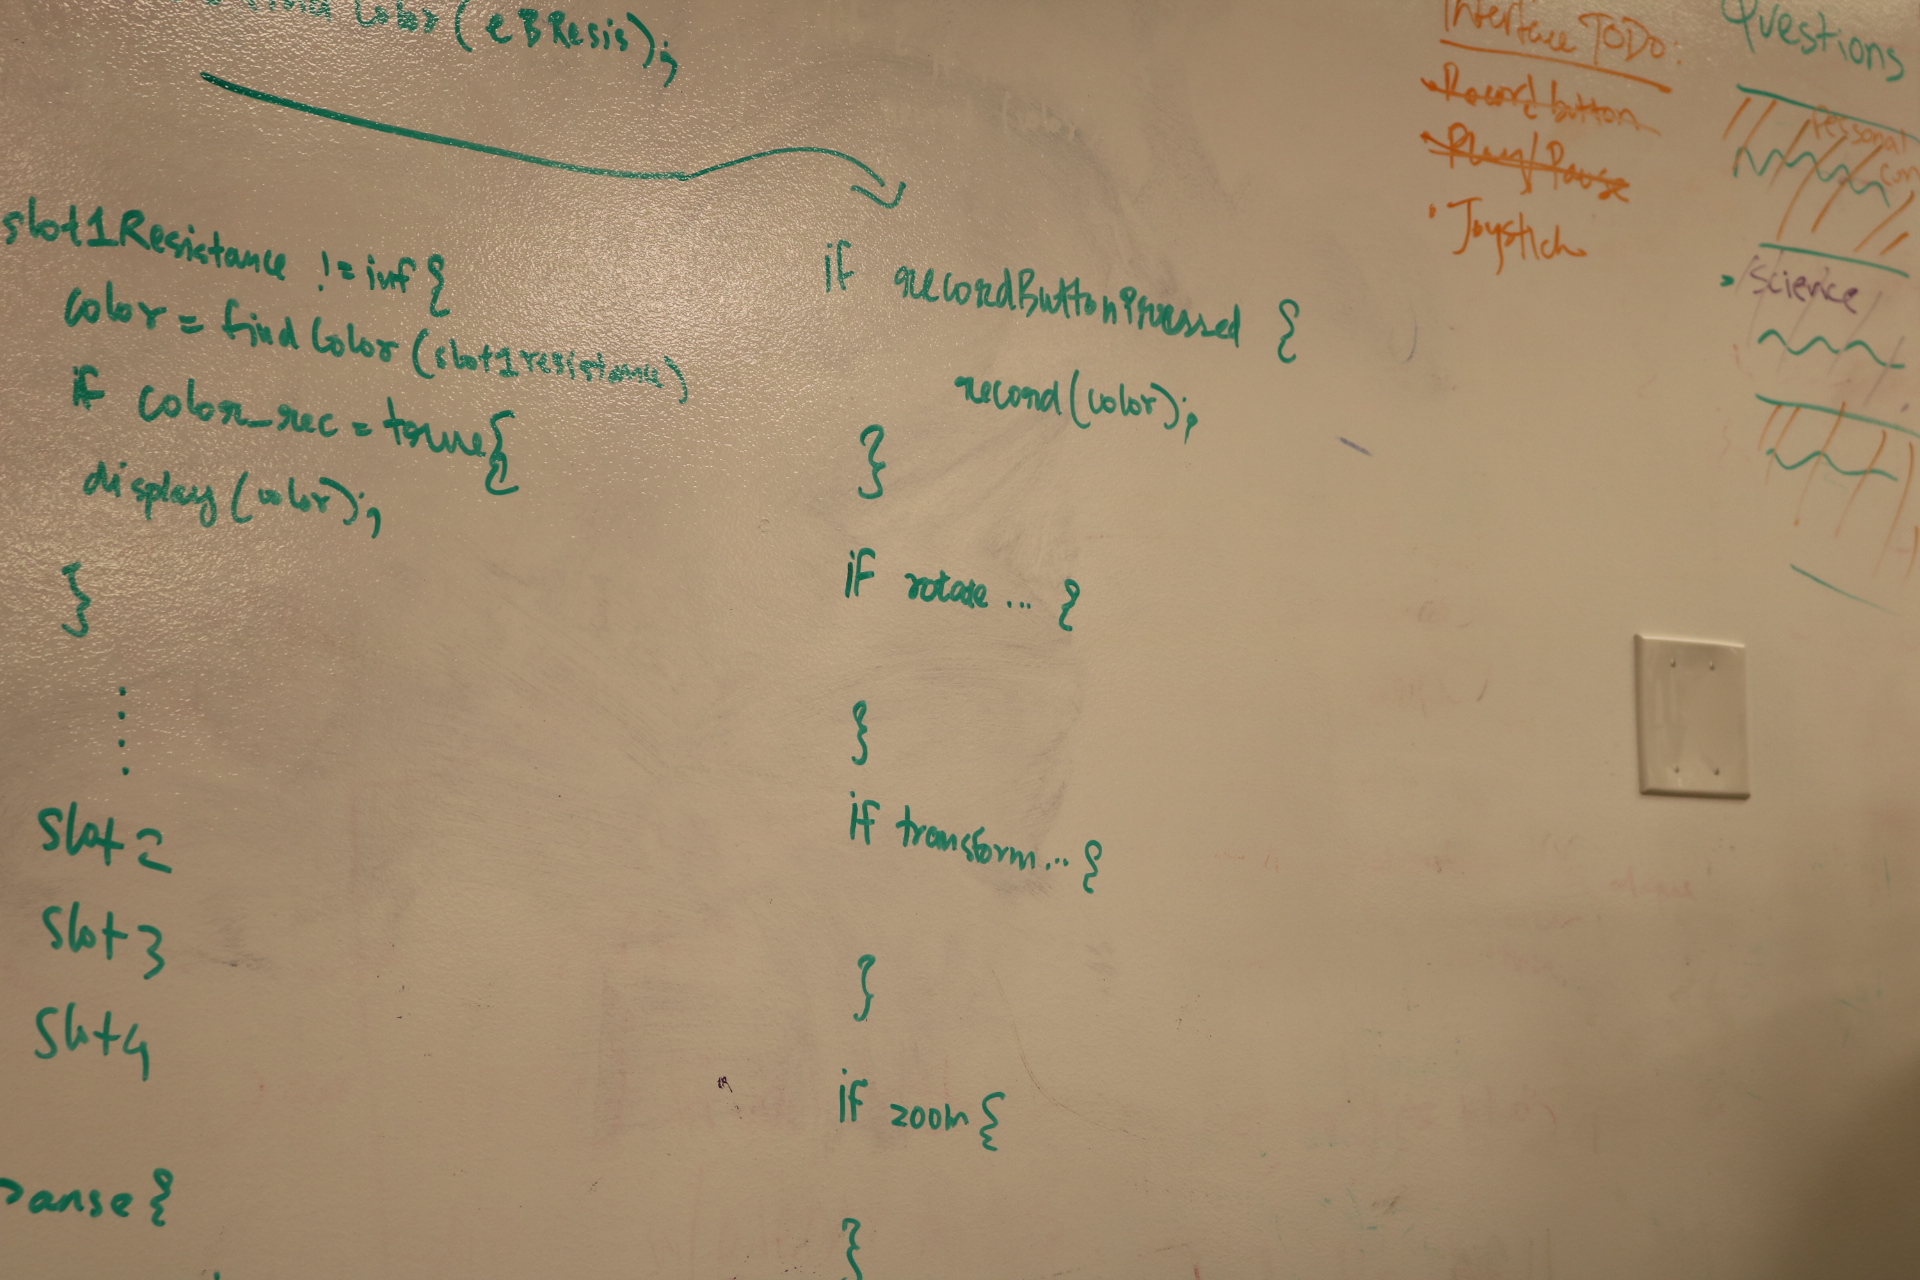 find Color (eBResis);
slot1Resistance != inf {
color = find Color (slot1resistance)
if color_rec = true {
display (color);
}
slot 2
slot 3
Slot 4
pause {
if recordButtonPressed {
record (color);
}
if rotate ... {
}
if transform ... {
}
if zoom {
}
Interface TODO:
• Record button
• Play/Pause
• Joystick
Questions
Personal
Science